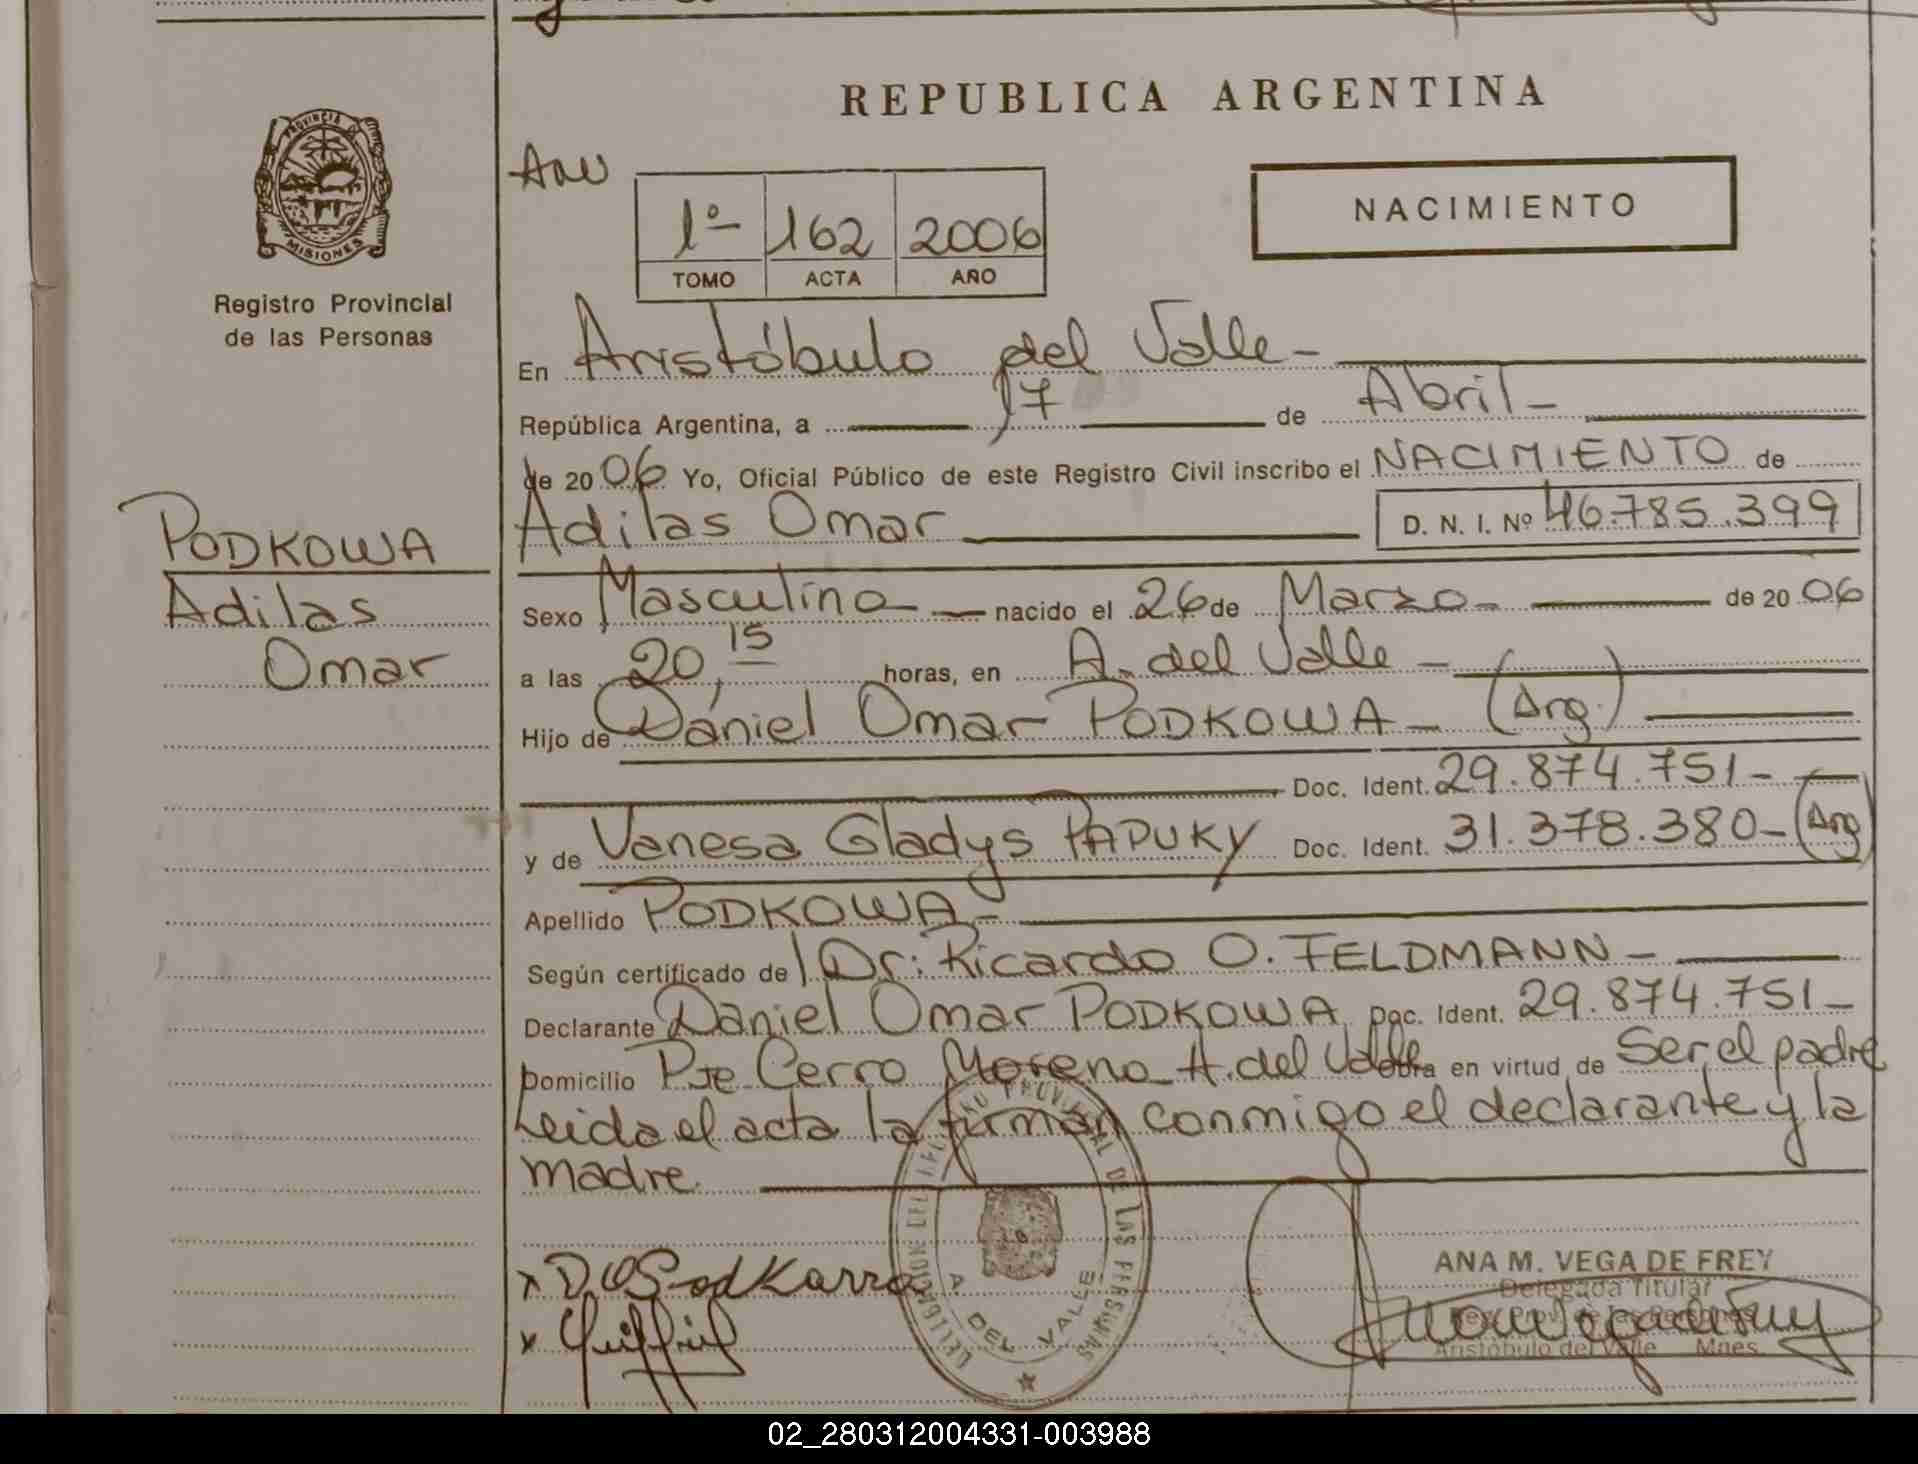 REPUBLICA ARGENTINA
PROVINCIA DE
MISIONES
Registro Provincial
de las Personas
1º 162 2006
TOMO ACTA AÑO
NACIMIENTO
En Aristóbulo del Valle -
República Argentina, a 17 de Abril -
de 20 06 Yo, Oficial Público de este Registro Civil inscribo el NACIMIENTO de
PODKOWA
Adilas
Omar
Adilas Omar D. N. I. Nº 46.785.399
Sexo Masculino nacido el 26 de Marzo - de 20 06
a las 20,15 horas, en A. del Valle -
Hijo de Daniel Omar PODKOWA - (Arg.)
Doc. Ident. 29.874.751 -
y de Vanesa Gladys PAPUKY Doc. Ident. 31.378.380 - (Arg
Apellido PODKOWA -
Según certificado de Dr: Ricardo O. FELDMANN -
Declarante Daniel Omar PODKOWA Doc. Ident. 29.874.751 -
Domicilio Pje Cerro Moreno A. del Valle Obra en virtud de Ser el padre
Leida el acta la firman conmigo el declarante y la
madre.
DELEGACION DEL REGISTRO PROVINCIAL DE LAS PERSONAS
A. DEL VALLE
ANA M. VEGA DE FREY
Delegada Titular
Reg. Prov. de las Personas
Aristóbulo del Valle Mnes.
02_280312004331-003988